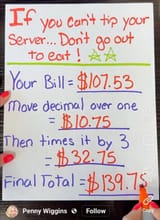 If you can't tip your
server... Don't go out
to eat!
Your Bill = $107.53
Move decimal over one
= $10.75
Then times it by 3
= $32.75
Final Total = $139.75
Penny Wiggins
Follow